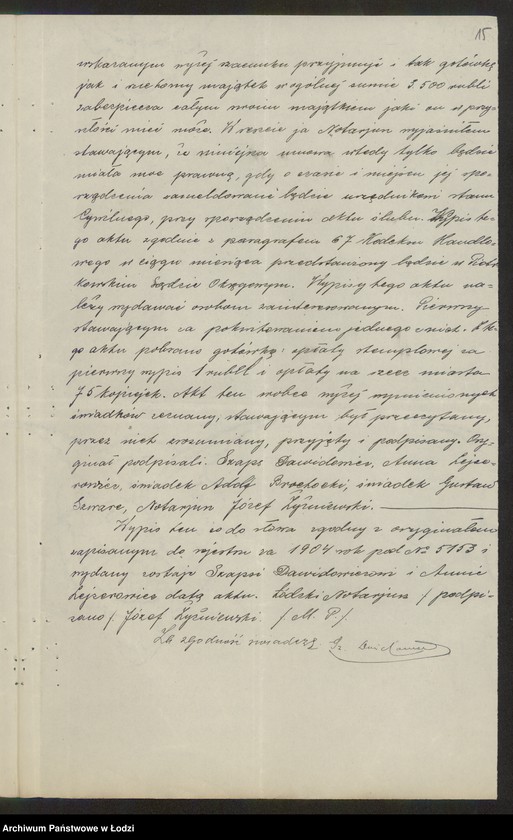 15
wskazanym wyżej szacunku przyjmuje i tak gotówkę
jak i ruchomy majątek w ogólnej sumie 3.500 rubli
zabezpiecza całym swoim majątkiem jaki on w przy-
szłości mieć może. W reszcie ja Notarjusz wyjaśniłem
stawającym, że niniejsza umowa wtedy tylko będzie
miała moc prawną, gdy o czasie i miejscu jej spo-
rządzenia zameldowane będzie urzędnikowi stanu
Cywilnego, przy sporządzeniu aktu ślubu. Wypis te-
go aktu zgodnie z paragrafem 67 Kodeksu Handlo-
wego w ciągu miesiąca przedstawiony będzie w Piotr-
kowskim Sądzie Okręgowym. Wypisy tego aktu na-
leży wydawać osobom zainteresowanym. Pierwszy
stawającym za pokwitowaniem jednego z nich. Od te-
go aktu pobrano gotówką: opłaty stemplowej za
pierwszy wypis 1 rubel i opłaty na rzecz miasta
75 kopiejek. Akt ten wobec wyżej wymienionych
świadków zeznany, stawającym był przeczytany,
przez nich zrozumiany, przyjęty i podpisany. Ory-
ginał podpisali: Szaps Dawidowicz, Anna Lejze-
rowicz, świadek Adolf Brochocki, świadek Gustaw
Szwarc, Notarjusz Józef Żyźniewski.
Wypis ten co do słowa zgodny z oryginałem
zapisanym do rejestru za 1904 rok pod № 5153 i
wydany zostaje Szapsi Dawidowiczowi i Annie
Lejzerowicz datą aktu. Łódzki Notarjusz /podpi-
sano/ Józef Żyźniewski. /M. P./
Za zgodność świadczy
Archiwum Państwowe w Łodzi